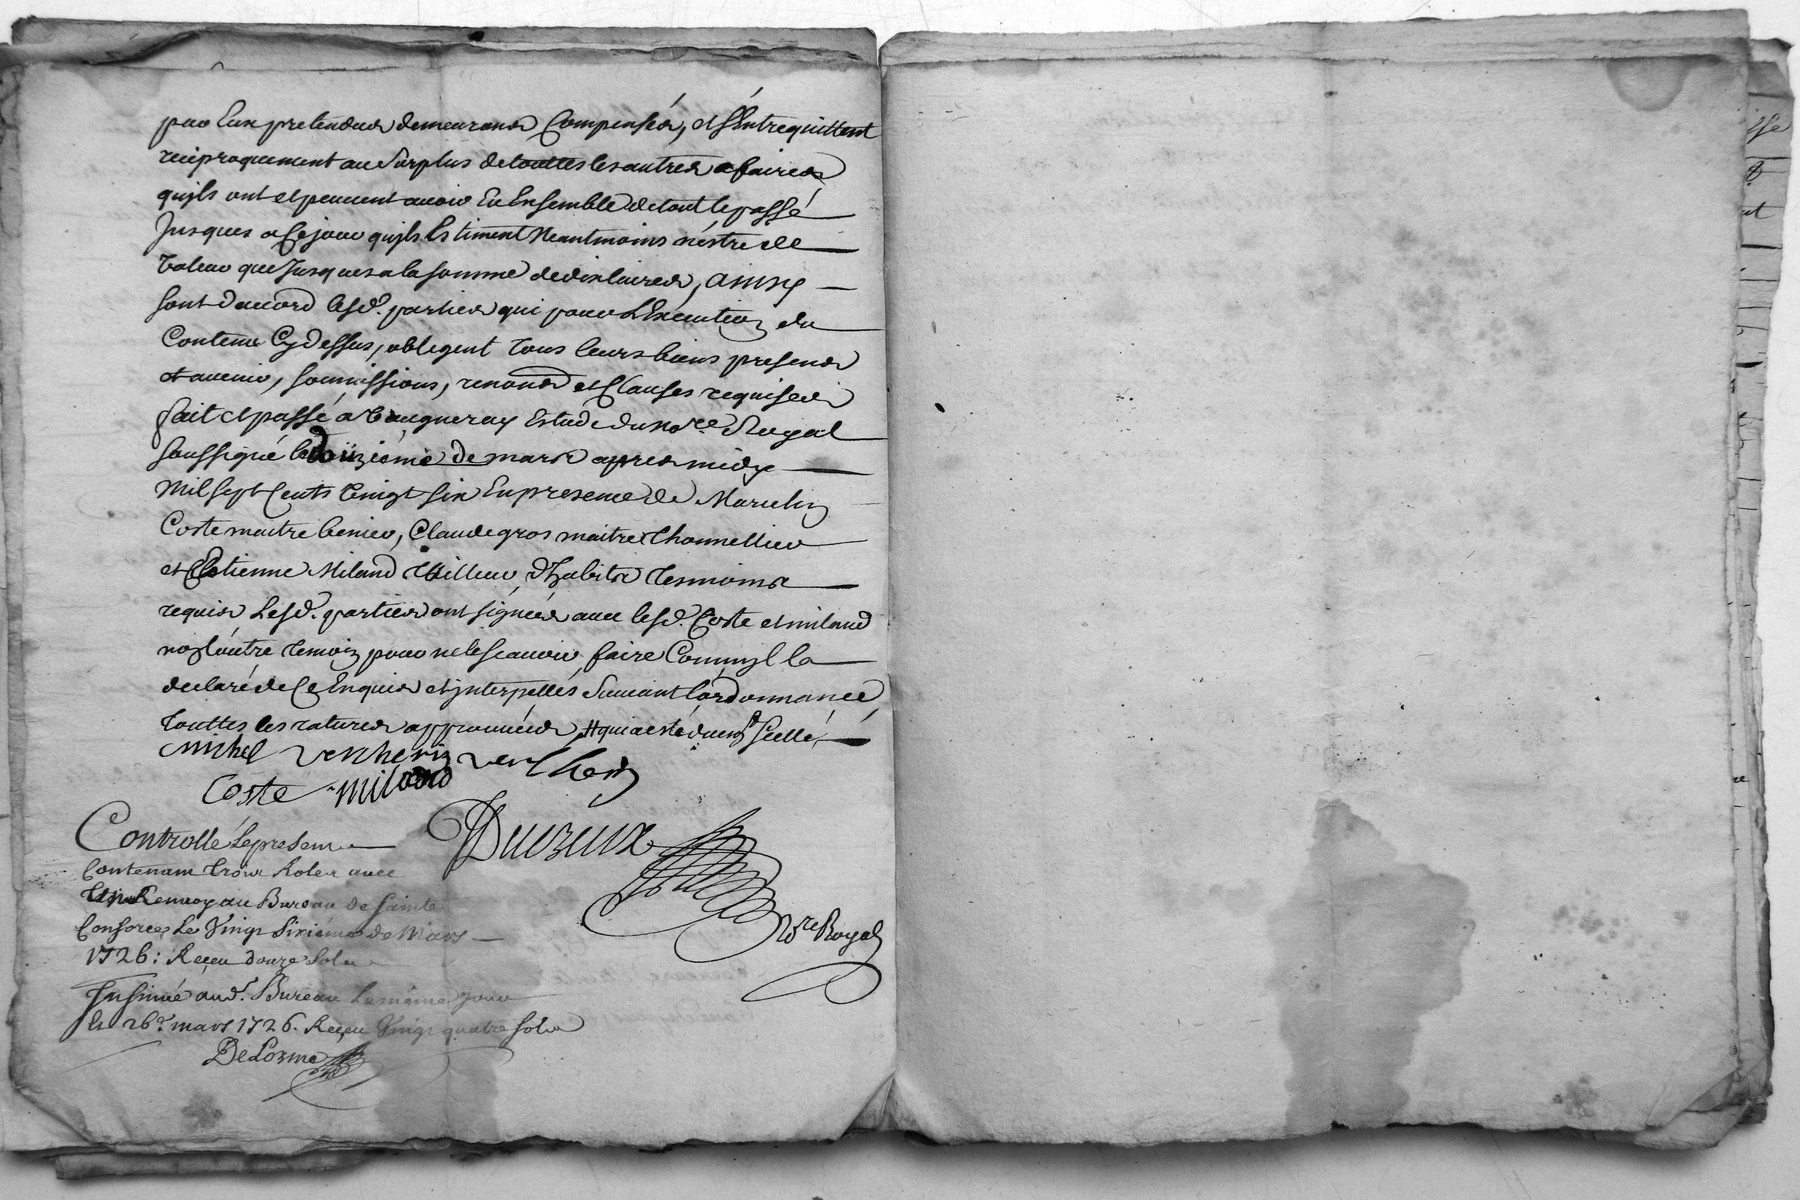 par Eux pretendus demeurans Compensés, et s'Entrequittent
reciproquement au Surplus de touttes les autres afaires
quils ont et peuvent avoir Eu Ensemble de tout le passé
Jusques a Ce jour quils Estiment Neantmoins n'éstre de
Valeur que Jusques a la somme de dix livres, ainsy
sont d'accord lesd. parties qui pour L'Execution du
Contenu Cy dessus, obligent tous leurs biens presens
et avenir, soumissions, renons et Clauses requises
fait et passé à Vaugneray Estude du no.re Royal
soussigné le douziéme de mars apres midy
Mil sept Cents Vingt six En presence de
Coste maitre Claude gros maitre thonnellier
et Estienne Miland d'habitn tesmoins
requis Lesd. parties ont signées avec lesd. Coste et miland
non l'autre temoin pour ne le scavoir faire Comm'il la
declaré de Ce Enquis et interpellés Suivant l'ordonnance
touttes les ratures approuvées, # qui a esté duem.t scellé,
michel venherin
Coste miland
Controllé le present
Contenant trois Roles avec
Un Renvoy au Bureau de Sainte
Consorce, Le Vingt Sixiéme de Mars
1726: Receu douze Sols
Insinué aud. Bureau Le méme jour
le 26.e mars 1726. Receu Vingt quatre sols
Ducreux
N.re Royal
DeLorme